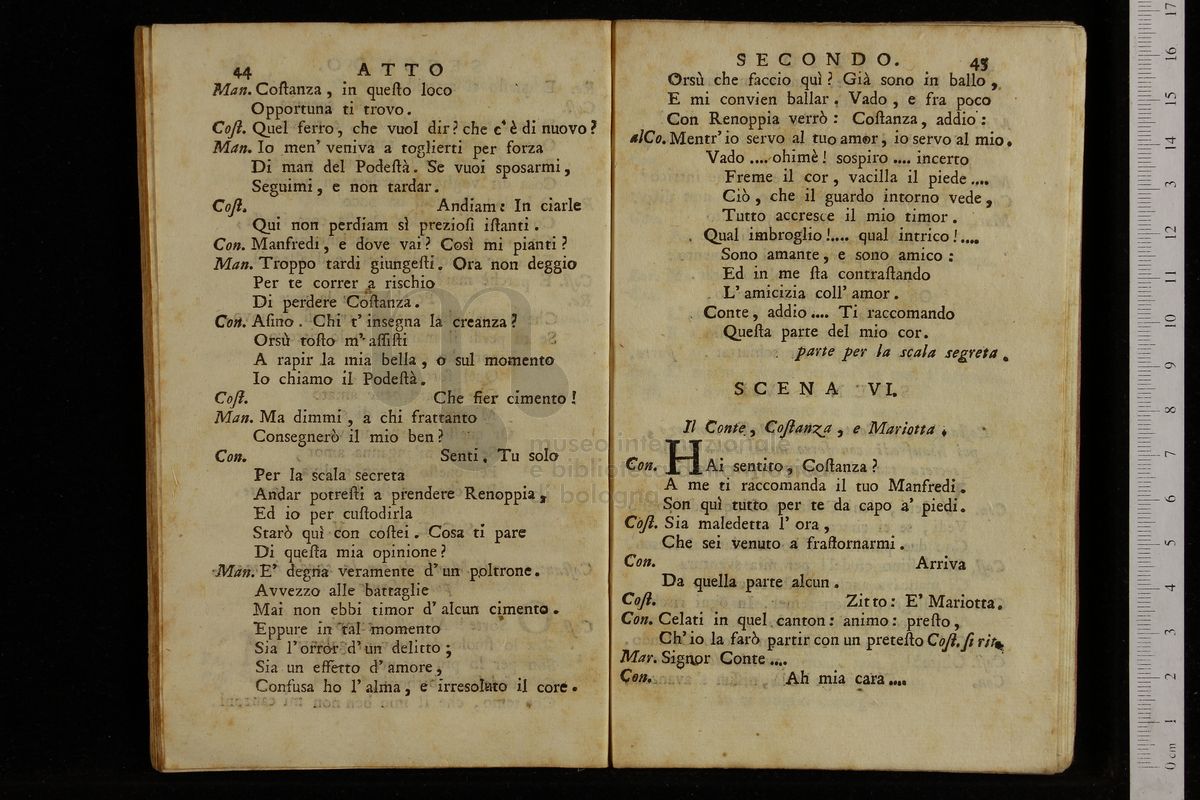 44 ATTO
Man. Coſtanza, in queſto loco
Opportuna ti trovo.
Coſt. Quel ferro, che vuol dir? che c'è di nuovo?
Man. Io men' veniva a toglierti per forza
Di man del Podeſtà. Se vuoi sposarmi,
Seguimi, e non tardar.
Coſt. Andiam: In ciarle
Qui non perdiam sì prezioſi iſtanti.
Con. Manfredi, e dove vai? Così mi pianti?
Man. Troppo tardi giungeſti. Ora non deggio
Per te correr a rischio
Di perdere Coſtanza.
Con. Aſino. Chi t'insegna la creanza?
Orsù toſto m'aſſiſti
A rapir la mia bella, o sul momento
Io chiamo il Podeſtà.
Coſt. Che fier cimento!
Man. Ma dimmi, a chi frattanto
Consegnerò il mio ben?
Con. Senti. Tu solo
Per la scala secreta
Andar potreſti a prendere Renoppia,
Ed io per cuſtodirla
Starò quì con coſtei. Cosa ti pare
Di queſta mia opinione?
Man. E' degna veramente d'un poltrone.
Avvezzo alle battaglie
Mai non ebbi timor d'alcun cimento.
Eppure in tal momento
Sia l'orror d'un delitto;
Sia un effetto d'amore,
Confusa ho l'alma, e irresoluto il core.
SECONDO. 45
Orsù che faccio quì? Già sono in ballo,
E mi convien ballar. Vado, e fra poco
Con Renoppia verrò: Coſtanza, addio:
alCo. Mentr'io servo al tuo amor, io servo al mio.
Vado .... ohimè! sospiro .... incerto
Freme il cor, vacilla il piede....
Ciò, che il guardo intorno vede,
Tutto accresce il mio timor.
Qual imbroglio!.... qual intrico!....
Sono amante, e sono amico:
Ed in me ſta contraſtando
L'amicizia coll'amor.
Conte, addio .... Ti raccomando
Queſta parte del mio cor.
parte per la scala segreta.
SCENA VI.
Il Conte, Coſtanza, e Mariotta.
Con. HAi sentito, Coſtanza?
A me ti raccomanda il tuo Manfredi.
Son quì tutto per te da capo a' piedi.
Coſt. Sia maledetta l'ora,
Che sei venuto a fraſtornarmi.
Con. Arriva
Da quella parte alcun.
Coſt. Zitto: E' Mariotta.
Con. Celati in quel canton: animo: preſto,
Ch'io la farò partir con un preteſto Coſt. ſi rit.
Mar. Signor Conte ....
Con. Ah mia cara ....
museo internazionale
e biblioteca della musica
di bologna
0 cm 1 2 3 4 5 6 7 8 9 10 11 12 13 14 15 16 17